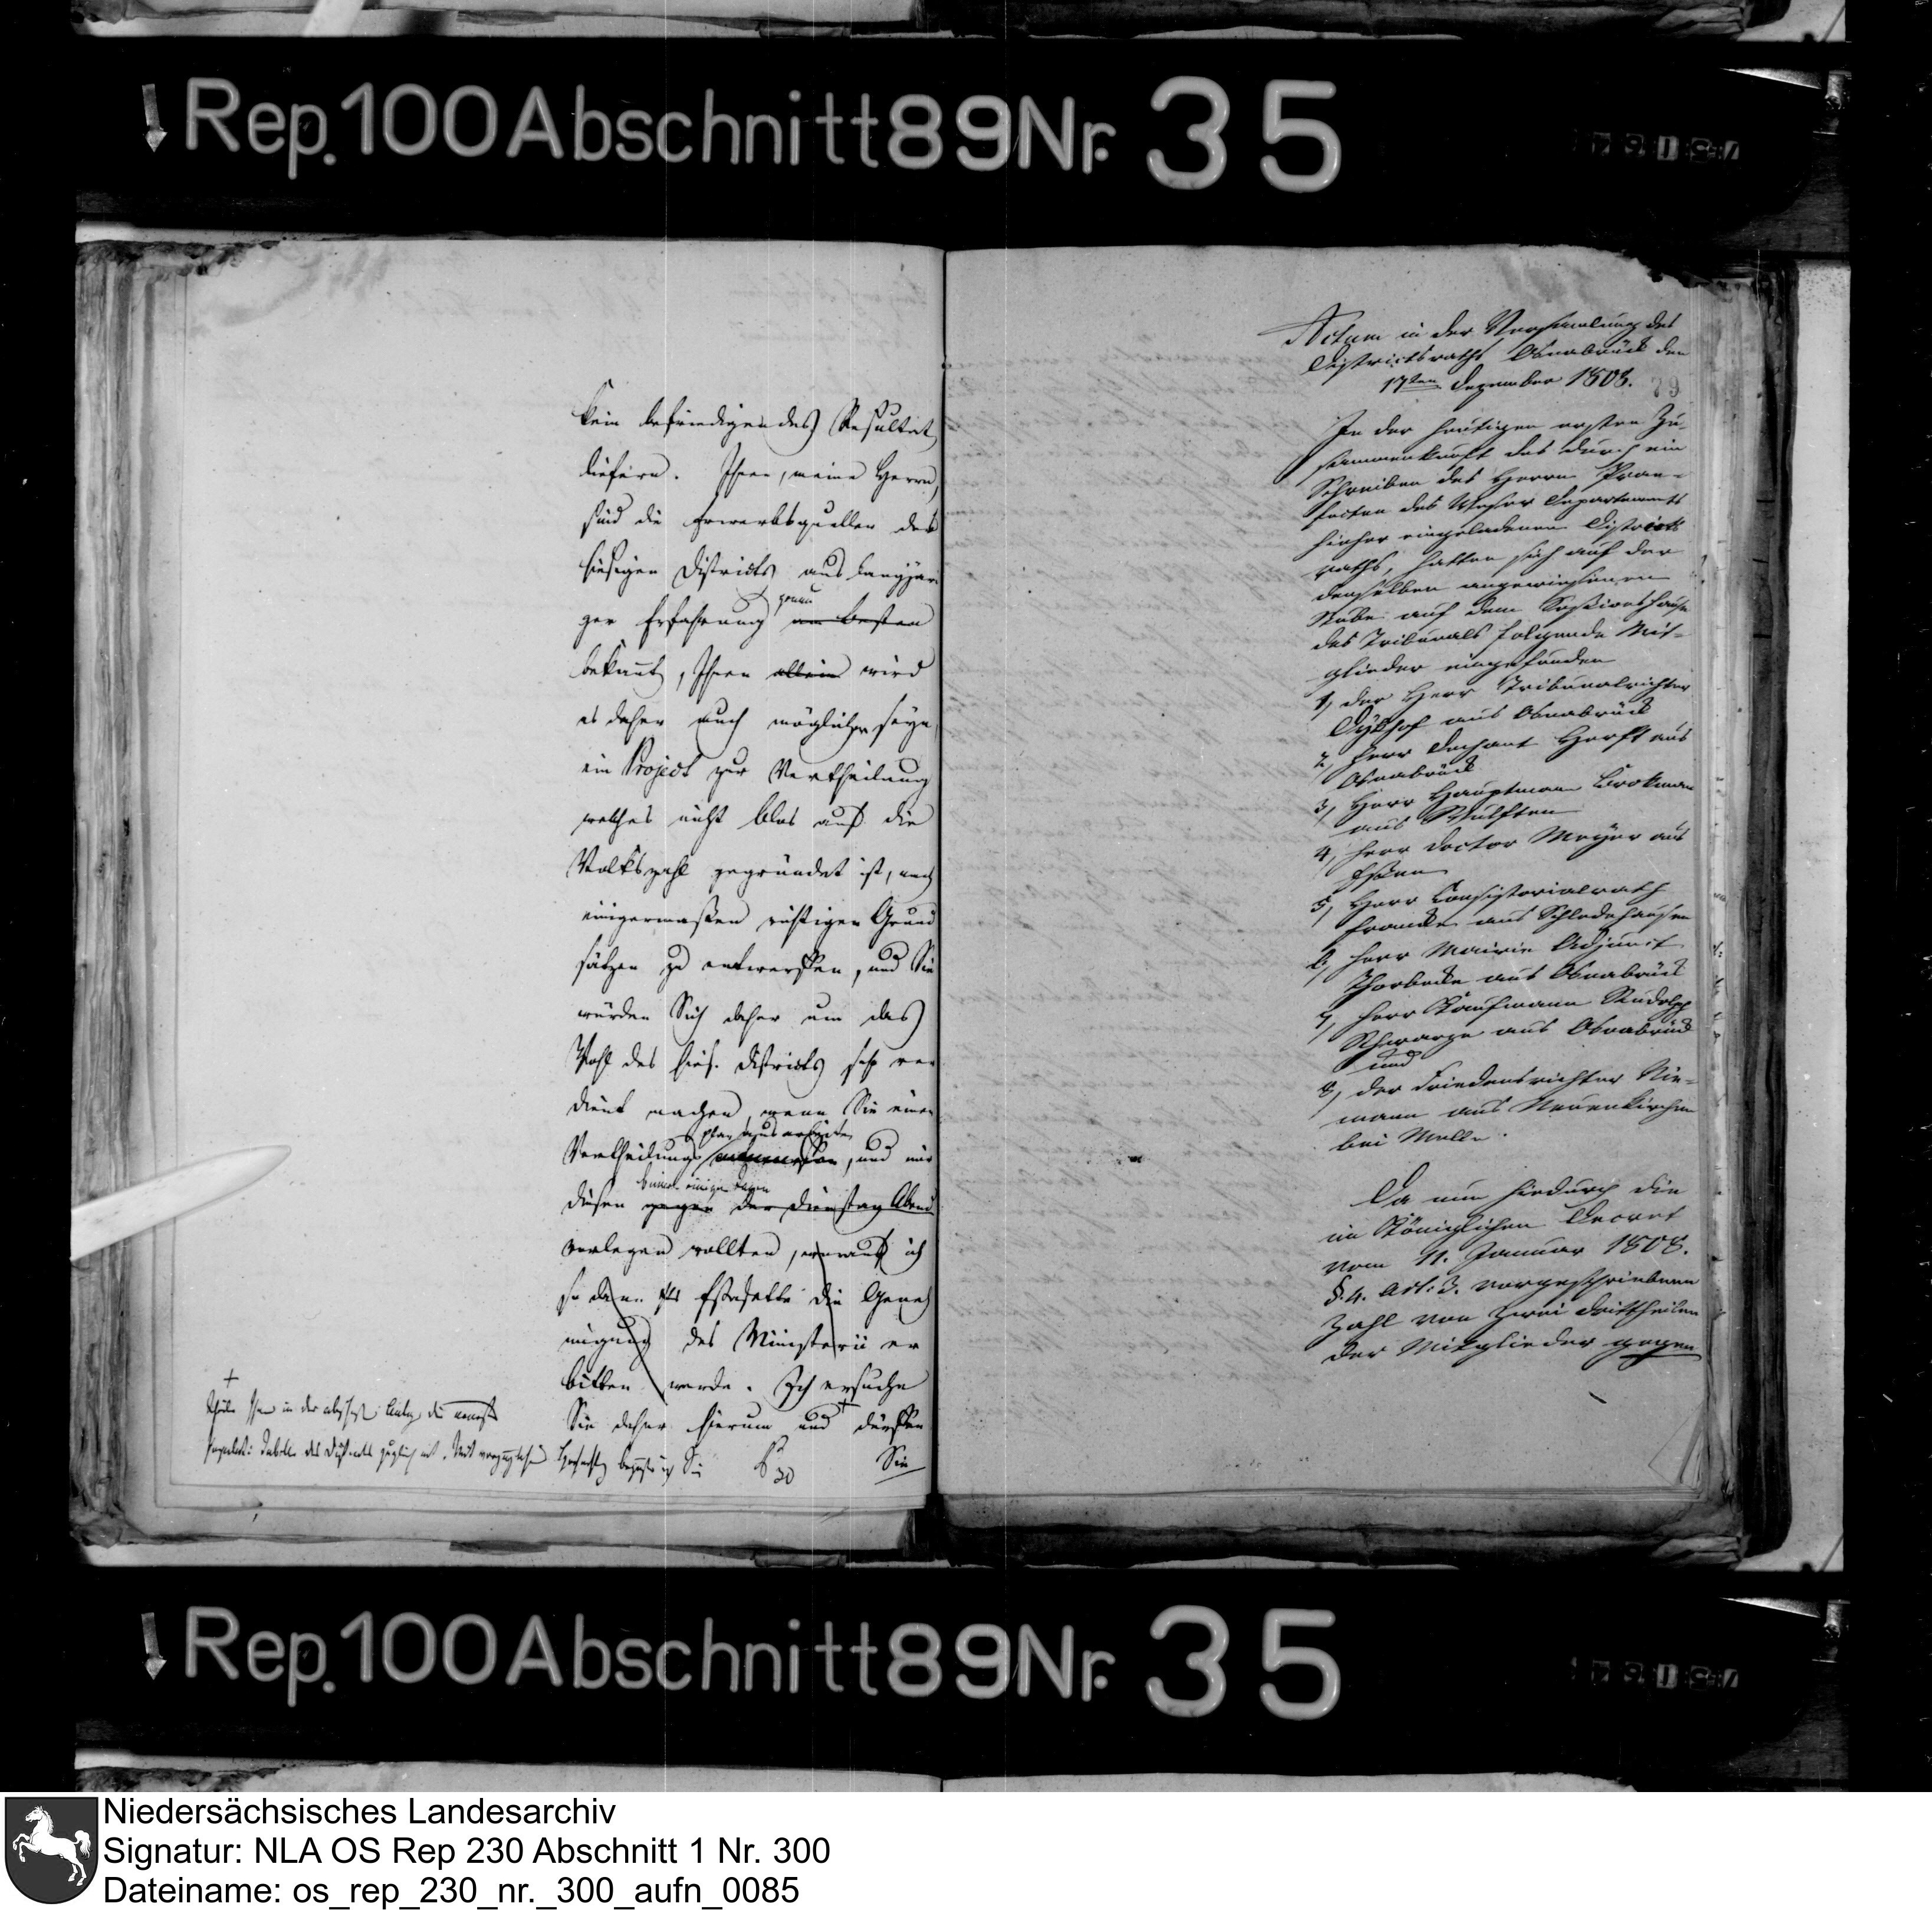 Rep. 100 Abschnitt 89 Nr. 35
kein befriedigendes Resultat
liefern. Ihnen, meine Herrn,
sind die Erwerbsquellen des
hiesigen Districts aus langjäri
genau
ger Erfahrung am besten
bekannt, Ihnen allein wird
es daher auch möglich seyn,
ein Project zur Vertheilung
welches nicht blos auf die
Volkszahl gegründet ist, nach
einigermaßen richtigen Grund
sätzen zu entwerffen, und Sie
würden Sich daher um das
Wohl des hies. Districts sehr ver
dient machen, wenn Sie einen
plan ausarbeiten
Vertheilungs , und mir
binnen einigen Tagen
diesen gegen der Dienstag Abend
vorlegen wollten, worauf ich
so dann per Estafette die Geneh
migung des Ministerii er
bitten werde. Ich ersuche
Sie daher hierum und dürffen
Sie
+
theile Ihnen in der Anlage die neueste
Populat: Tabelle des Districts zugleich mit. Mit vorzüglicher
Hochachtg Sie
Actum in der Versamlung des
Districtsraths Osnabrück den
17ten Dezember 1808.
79
In der heutigen ersten Zu-
sammenkunft des durch ein
Schreiben des Herrn Prae-
fecten des Weser Departements
hieher eingeladenen Districts
raths, hatten sich auf der
demselben angewiesenen
Stube auf dem
des Tribunals folgende Mit-
glieder eingefunden
1, der Herr Tribunalrichter
Dyckhof aus Osnabrück
2, Herr Dechant Horst aus
Osnabrück
3, Herr Hauptmann Brokman
aus Wulften
4, Herr Doctor Meyer aus
Essen
5, Herr Consistorialrath
Francke aus Schledehausen
6, Herr Mairie Adjunct
Thorbecke aus Osnabrück
7, Herr Kaufmann Rudolph
Schwarze aus Osnabrück
und
8, der Friedensrichter Nie-
mann aus Neuenkirchen
bei Melle.
Da nun hiedurch die
im Königlichen Decret
vom 11. Januar 1808.
§. 4. Art: 3. vorgeschriebene
Zahl von zwei Drittheilen
der Mitglieder gegen
Rep. 100 Abschnitt 89 Nr. 35
Niedersächsisches Landesarchiv
Signatur: NLA OS Rep 230 Abschnitt 1 Nr. 300
Dateiname: os_rep_230_nr._300_aufn_0085